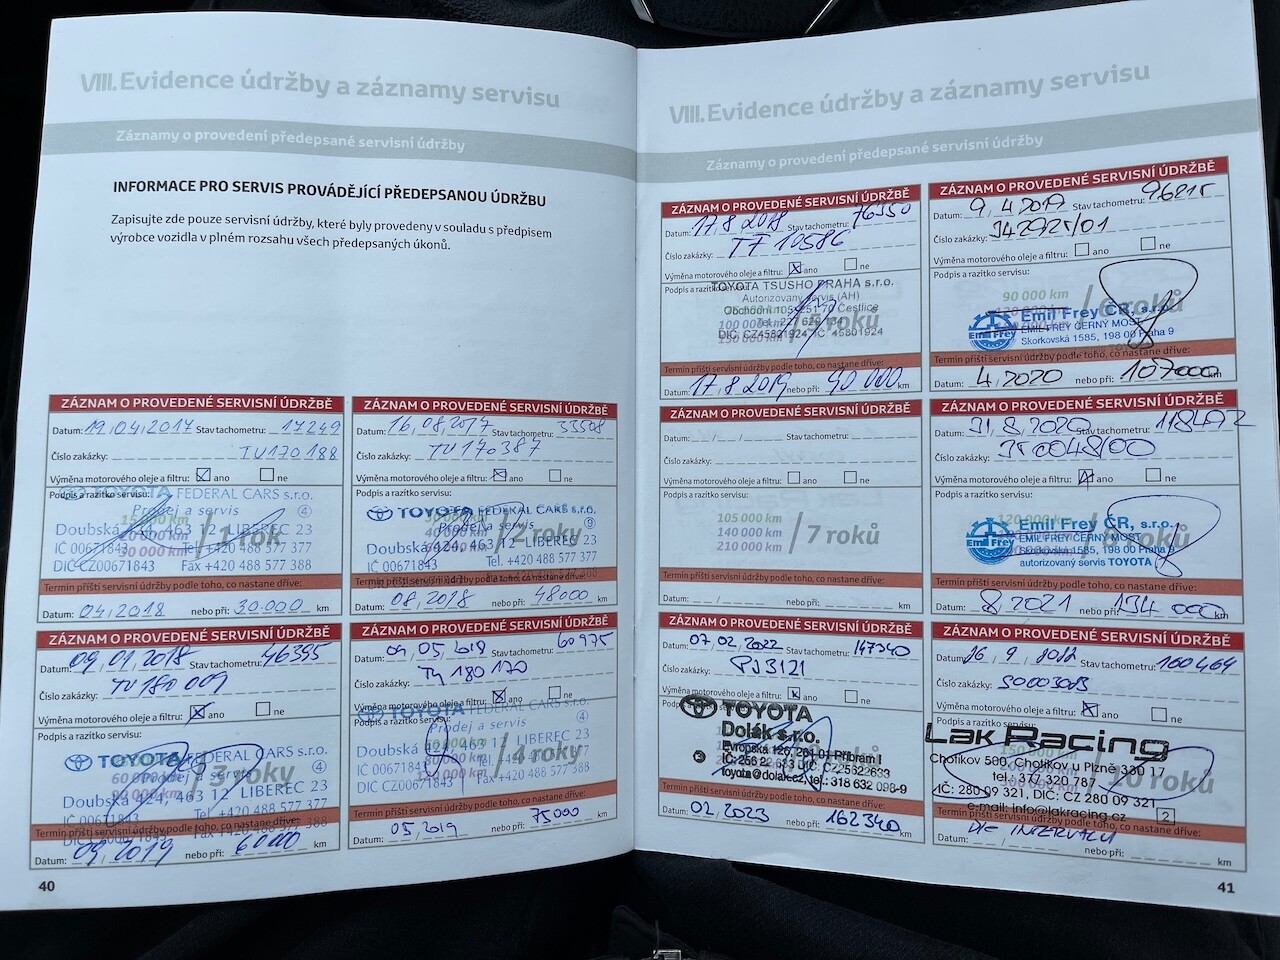 VIII. Evidence údržby a záznamy servisu
Záznamy o provedení předepsané servisní údržby
INFORMACE PRO SERVIS PROVÁDĚJÍCÍ PŘEDEPSANOU ÚDRŽBU
Zapisujte zde pouze servisní údržby, které byly provedeny v souladu s předpisem
výrobce vozidla v plném rozsahu všech předepsaných úkonů.
ZÁZNAM O PROVEDENÉ SERVISNÍ ÚDRŽBĚ
Datum: 19.04.2017 Stav tachometru: 17249
Číslo zakázky: TU170188
Výměna motorového oleje a filtru: ano ne
Podpis a razítko servisu:
TOYOTA FEDERAL CARS s.r.o.
Prodej a servis 4
Doubská 463 12 LIBEREC 23
IČ 00671843 Tel. +420 488 577 377
DIČ CZ00671843 Fax +420 488 577 388
1 rok
Termín příští servisní údržby podle toho, co nastane dříve:
Datum: 04.2018 nebo při: 30.000 km
ZÁZNAM O PROVEDENÉ SERVISNÍ ÚDRŽBĚ
Datum: 16.08.2017 Stav tachometru: 33508
Číslo zakázky: TU170387
Výměna motorového oleje a filtru: ano ne
Podpis a razítko servisu:
TOYOTA FEDERAL CARS s.r.o.
Prodej a servis
Doubská 424, 463 12 LIBEREC 23
IČ 00671843 Tel. +420 488 577 377
2 roky
Termín příští servisní údržby podle toho, co nastane dříve:
Datum: 08.2018 nebo při: 48000 km
ZÁZNAM O PROVEDENÉ SERVISNÍ ÚDRŽBĚ
Datum: 09.01.2018 Stav tachometru: 46395
Číslo zakázky: TU180009
Výměna motorového oleje a filtru: ano ne
Podpis a razítko servisu:
TOYOTA FEDERAL CARS s.r.o.
Prodej a servis 4
60 000 km
3 roky
Doubská 424, 463 12 LIBEREC 23
IČ 00671843 Tel. +420 488 577 377
Termín příští servisní údržby podle toho, co nastane dříve:
Datum: 09.2019 nebo při: km
ZÁZNAM O PROVEDENÉ SERVISNÍ ÚDRŽBĚ
Datum: 09.05.2018 Stav tachometru: 60975
Číslo zakázky: 180170
Výměna motorového oleje a filtru: ano ne
Podpis a razítko servisu:
TOYOTA FEDERAL CARS s.r.o.
Prodej a servis 4
Doubská 463 12 LIBEREC 23
IČ 00671843 Tel. +420 488 577 377
DIČ CZ00671843 Fax +420 488 577 388
4 roky
Termín příští servisní údržby podle toho, co nastane dříve:
Datum: 05.2019 nebo při: 75000 km
40
VIII. Evidence údržby a záznamy servisu
Záznamy o provedení předepsané servisní údržby
ZÁZNAM O PROVEDENÉ SERVISNÍ ÚDRŽBĚ
Datum: 17.8.2018 Stav tachometru: 76350
Číslo zakázky: TT 10586
Výměna motorového oleje a filtru: ano ne
Podpis a razítko servisu:
TOYOTA TSUSHO PRAHA s.r.o.
Autorizovaný servis (AH)
Obchodní 105, 251 70 Čestlice
5 roků
DIČ: CZ45801924 IČ: 45801924
Termín příští servisní údržby podle toho, co nastane dříve:
Datum: 17.8.2019 nebo při: 90 000 km
ZÁZNAM O PROVEDENÉ SERVISNÍ ÚDRŽBĚ
Datum: 9.4.2019 Stav tachometru: 96215
Číslo zakázky: 342925/01
Výměna motorového oleje a filtru: ano ne
Podpis a razítko servisu:
90 000 km
6 roků
Emil Frey ČR, s.r.o.
EMIL FREY ČERNÝ MOST
Skorkovská 1585, 198 00 Praha 9
Emil Frey
Termín příští servisní údržby podle toho, co nastane dříve:
Datum: 4.2020 nebo při: 107000 km
ZÁZNAM O PROVEDENÉ SERVISNÍ ÚDRŽBĚ
Datum: Stav tachometru:
Číslo zakázky:
Výměna motorového oleje a filtru: ano ne
Podpis a razítko servisu:
105 000 km
140 000 km
210 000 km
7 roků
Termín příští servisní údržby podle toho, co nastane dříve:
Datum: nebo při: km
ZÁZNAM O PROVEDENÉ SERVISNÍ ÚDRŽBĚ
Datum: 31.8.2020 Stav tachometru: 118492
Číslo zakázky:
Výměna motorového oleje a filtru: ano ne
Podpis a razítko servisu:
120 000 km
Emil Frey ČR, s.r.o.
EMIL FREY ČERNÝ MOST
Skorkovská 1585, 198 00 Praha 9
autorizovaný servis TOYOTA
Emil Frey
Termín příští servisní údržby podle toho, co nastane dříve:
Datum: 8.2021 nebo při: 134 000 km
ZÁZNAM O PROVEDENÉ SERVISNÍ ÚDRŽBĚ
Datum: 07.02.2022 Stav tachometru: 147340
Číslo zakázky: PJ3121
Výměna motorového oleje a filtru: ano ne
TOYOTA
Dolák s.r.o.
Evropská 126, 261 01 Příbram I
IČ: 256 22 633 DIČ: CZ25622633
toyota@dolak.cz, tel.: 318 632 098-9
Termín příští servisní údržby podle toho, co nastane dříve:
Datum: 02.2023 nebo při: 162340 km
ZÁZNAM O PROVEDENÉ SERVISNÍ ÚDRŽBĚ
Datum: 26.9.2022 Stav tachometru: 160464
Číslo zakázky: S0003083
Výměna motorového oleje a filtru: ano ne
Podpis a razítko servisu:
Lak Racing
Chotíkov 500, Chotíkov u Plzně 330 17
tel.: 377 320 787
10 roků
IČ: 280 09 321, DIČ: CZ 280 09 321
e-mail: info@lakracing.cz 2
Termín příští servisní údržby podle toho, co nastane dříve:
DLE INTERVALU
Datum: nebo při: km
41